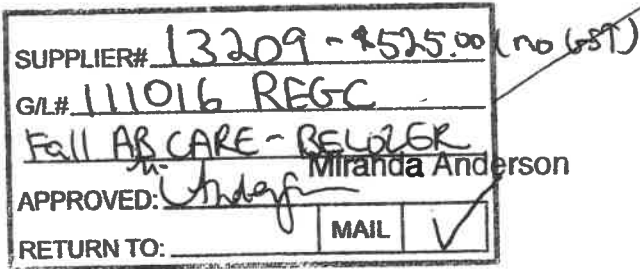 SUPPLIER# 13209 - $525.00 (no GST)
G/L# 111016 REGC
Fall AB CARE - BELOZER
Miranda Anderson
APPROVED: M. Anderson
RETURN TO: MAIL ✓